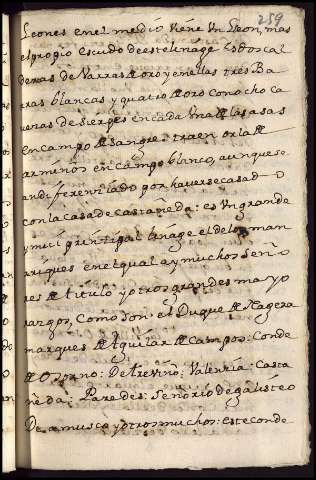 259
Leones enel medio viene Un Leon, mas
el propio escudo deeste linage es dos cal
deras de Varras de oro y en ellas tres Ba
ras blancas y quatro de oro con ocho ca
veras de sierpes en cada una de las asas
en campo de sangre: traen orla de
arminos en campo blanco, aunque se
an diferenziado por haverse casado
con la casa de castañeda: es Un grande
y mui prinzipal linage el delos man
rriques en el qual ay muchos Seño
res de titulo y otros grandes mayo
razgos, como son: el Duque de Nagera
marques de Aguilar de Campos: Conde
de Osorno: De treviño: Valenzia: Casta
ñeda: Paredes: Señorio de galisteo
De amusco y otros muchos: este conde